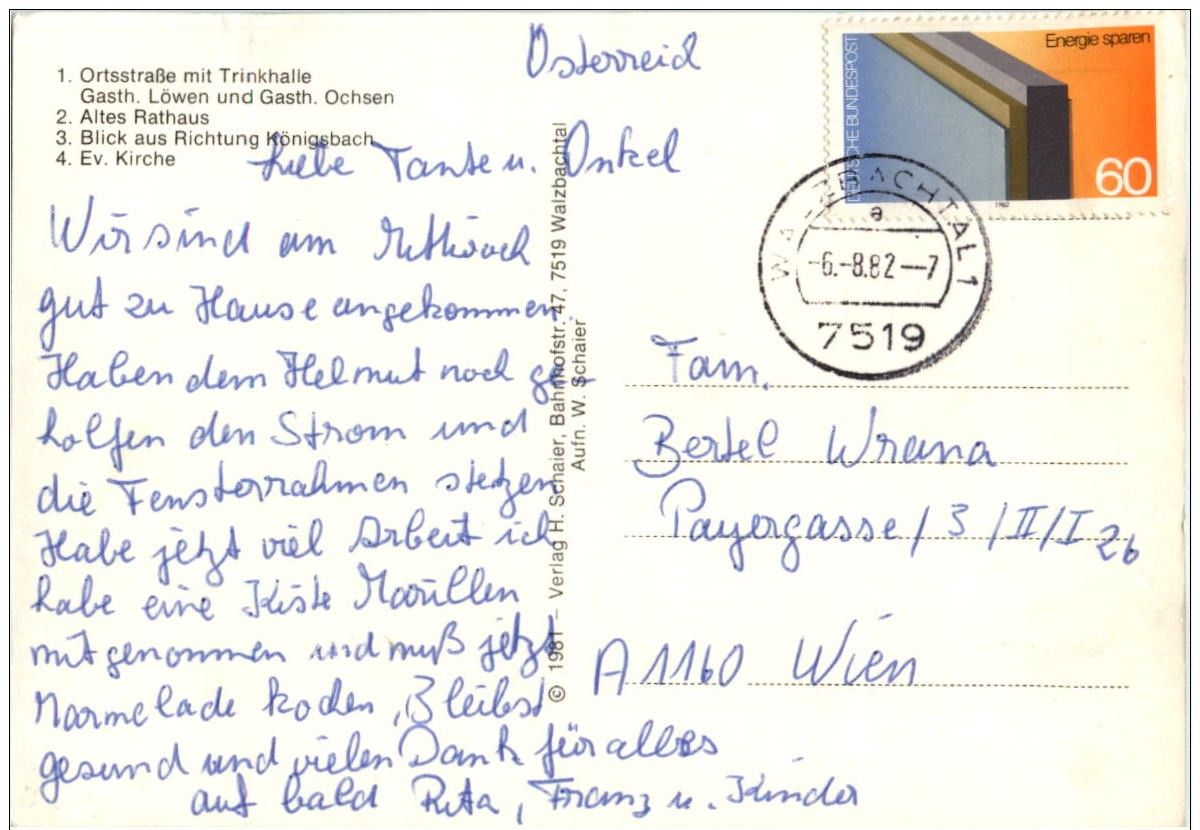 1. Ortsstraße mit Trinkhalle
Gasth. Löwen und Gasth. Ochsen
2. Altes Rathaus
3. Blick aus Richtung Königsbach
4. Ev. Kirche
Österreich
Liebe Tante u. Onkel
Wir sind am Mittwoch
gut zu Hause angekommen.
Haben dem Helmut noch ge-
holfen den Strom und
die Fensterrahmen stetzen
Habe jetzt viel Arbeit ich
habe eine Kiste Marillen
mitgenommen und muß jetzt
Marmelade kochen, Bleibst
gesund und vielen Dank für alles
auf bald Rita, Franz u. Kinder
© 1981 – Verlag H. Schaier, Bahnhofstr. 47, 7519 Walzbachtal
Aufn. W. Schaier
DEUTSCHE BUNDESPOST
Energie sparen
60
1982
WALZBACHTAL 1
a
-6.-8.82--7
7519
Fam.
Bertel Wrana
Payergasse / 3 / II / I 26
A 1160 Wien